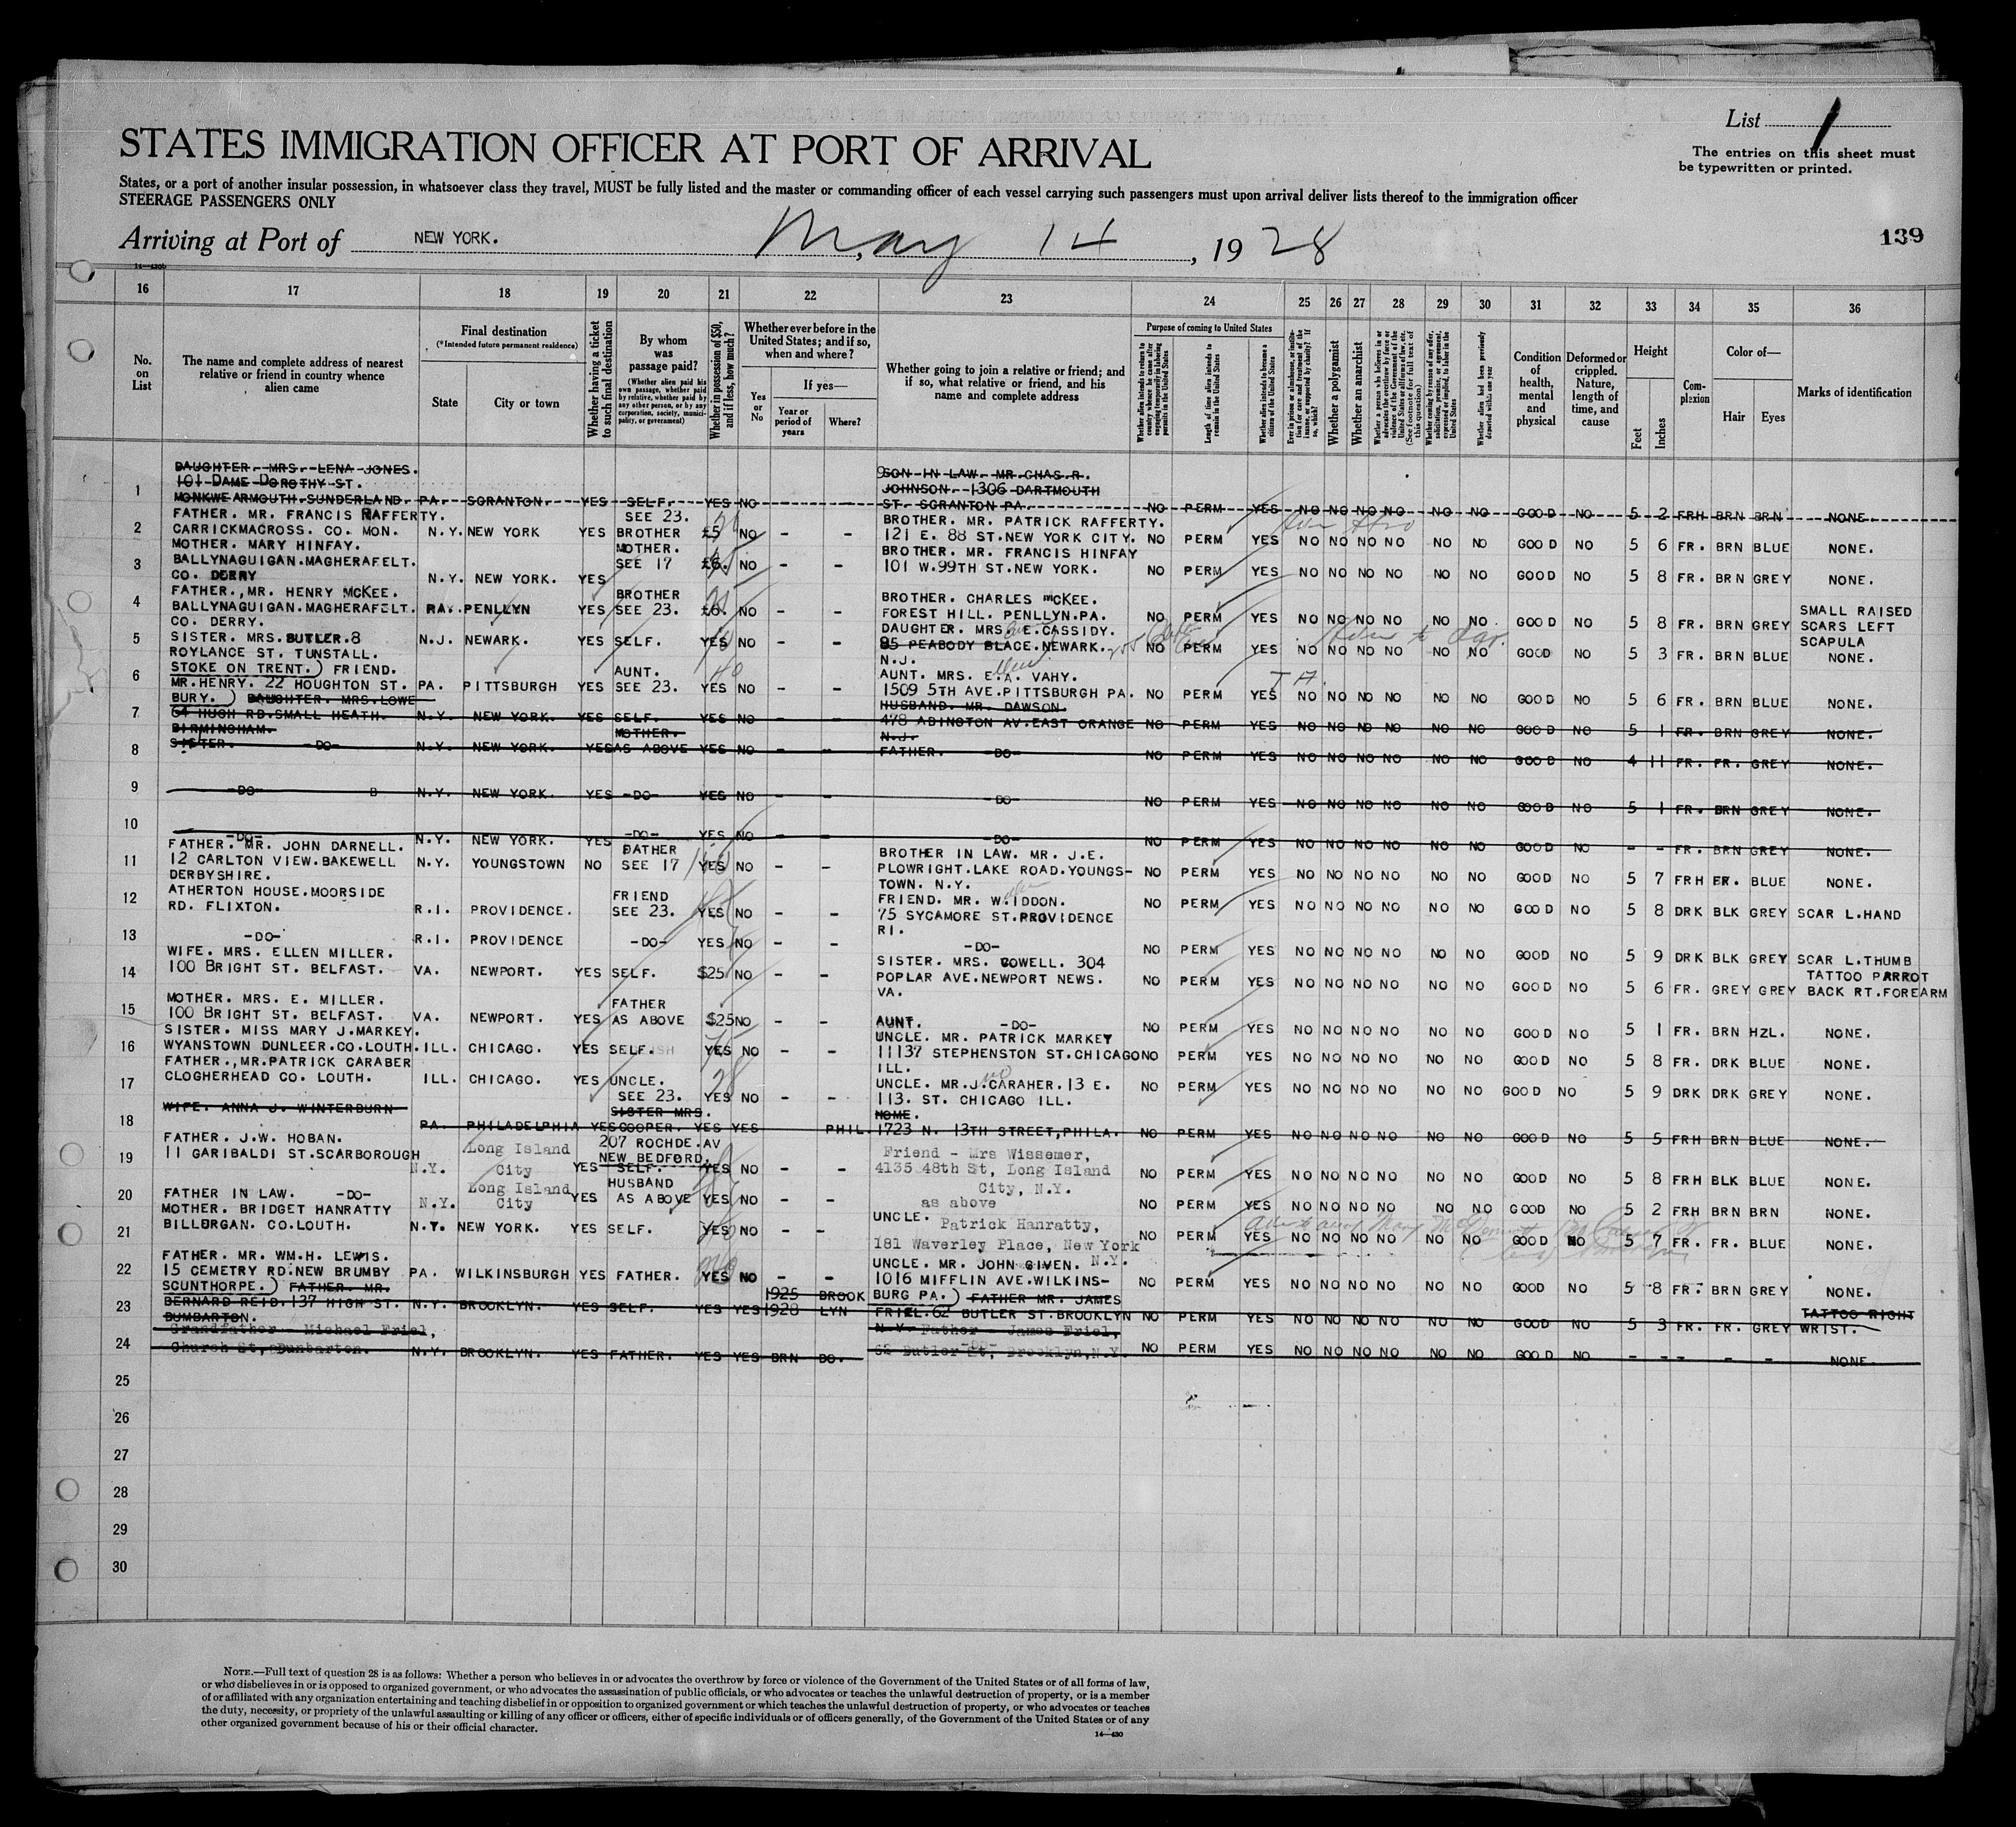 List 1
The entries on this sheet must
be typewritten or printed.
STATES IMMIGRATION OFFICER AT PORT OF ARRIVAL
States, or a port of another insular possession, in whatsoever class they travel, MUST be fully listed and the master or commanding officer of each vessel carrying such passengers must upon arrival deliver lists thereof to the immigration officer
STEERAGE PASSENGERS ONLY
Arriving at Port of NEW YORK. , May 14 , 19 28
139
16 17 18 19 20 21 22 23 24 25 26 27 28 29 30 31 32 33 34 35 36
No. on List
The name and complete address of nearest relative or friend in country whence alien came
Final destination
(*Intended future permanent residence)
State
City or town
Whether having a ticket to such final destination
By whom was passage paid?
(Whether alien paid his own passage, whether paid by relative, whether paid by any other person, or by any corporation, society, municipality, or government)
Whether in possession of $50, and if less, how much?
Whether ever before in the United States; and if so, when and where?
Yes or No
If yes—
Year or period of years
Where?
Whether going to join a relative or friend; and if so, what relative or friend, and his name and complete address
Purpose of coming to United States
Length of time alien intends to remain in the United States
Whether alien intends to become a citizen of the United States
Whether a polygamist
Whether an anarchist
Condition of health, mental and physical
Deformed or crippled. Nature, length of time, and cause
Height
Feet
Inches
Complexion
Color of—
Hair
Eyes
Marks of identification
DAUGHTER. MRS. LENA JONES. SON IN LAW. MR. CHAS. R.
101 DAME DOROTHY ST. JOHNSON. 1306 DARTMOUTH
1 MONKWEARMOUTH. SUNDERLAND. PA. SCRANTON. YES SELF. YES NO - ST. SCRANTON PA. NO PERM YES NO NO NO NO NO NO GOOD NO 5 2 FRH BRN BRN NONE.
FATHER. MR. FRANCIS RAFFERTY. SEE 23. BROTHER. MR. PATRICK RAFFERTY.
2 CARRICKMACROSS. CO. MON. N.Y. NEW YORK YES BROTHER £5 NO - - 121 E. 88 ST. NEW YORK CITY. NO PERM YES NO NO NO NO NO NO GOOD NO 5 6 FR. BRN BLUE NONE.
MOTHER. MARY HINFAY. MOTHER. BROTHER. MR. FRANCIS HINFAY
3 BALLYNAGUIGAN. MAGHERAFELT. SEE 17 £6. NO - - 101 W. 99TH ST. NEW YORK. NO PERM YES NO NO NO NO NO NO GOOD NO 5 8 FR. BRN GREY NONE.
CO. DERRY N.Y. NEW YORK. YES
FATHER., MR. HENRY McKEE. BROTHER BROTHER. CHARLES McKEE.
4 BALLYNAGUIGAN. MAGHERAFELT. PA. PENLLYN YES SEE 23. £6. NO - - FOREST HILL. PENLLYN. PA. NO PERM YES NO NO NO NO NO NO GOOD NO 5 8 FR. BRN GREY SMALL RAISED SCARS LEFT SCAPULA
CO. DERRY. DAUGHTER. MRS. E. CASSIDY.
5 SISTER. MRS. BUTLER. 8 N.J. NEWARK. YES SELF. YES NO - - 85 PEABODY PLACE. NEWARK. NO PERM YES NO NO NO NO NO NO GOOD NO 5 3 FR. BRN BLUE NONE.
ROYLANCE ST. TUNSTALL. N.J.
STOKE ON TRENT.) FRIEND. AUNT. 40 AUNT. MRS. E.A. VAHY.
6 MR. HENRY. 22 HOUGHTON ST. PA. PITTSBURGH YES SEE 23. YES NO - - 1509 5TH AVE. PITTSBURGH PA. NO PERM YES NO NO NO NO NO NO GOOD NO 5 6 FR. BRN BLUE NONE.
BURY.) DAUGHTER. MRS. LOWE HUSBAND. MR. DAWSON.
7 64 HUGH RD. SMALL HEATH. N.Y. NEW YORK. YES SELF. YES NO - - 478 ABINGTON AV. EAST ORANGE NO PERM YES NO NO NO NO NO NO GOOD NO 5 1 FR. BRN GREY NONE.
BIRMINGHAM. MOTHER. N.J.
8 SISTER. -DO- N.Y. NEW YORK. YES AS ABOVE YES NO - - FATHER. -DO- NO PERM YES NO NO NO NO NO NO GOOD NO 4 11 FR. FR. GREY NONE.
9 -DO- N.Y. NEW YORK. YES -DO- YES NO - - -DO- NO PERM YES NO NO NO NO NO NO GOOD NO 5 1 FR. BRN GREY NONE.
10 -DO- N.Y. NEW YORK. YES -DO- YES NO - - -DO- NO PERM YES NO NO NO NO NO NO GOOD NO - - FR. BRN GREY NONE.
FATHER. MR. JOHN DARNELL. FATHER BROTHER IN LAW. MR. J.E.
11 12 CARLTON VIEW. BAKEWELL N.Y. YOUNGSTOWN NO SEE 17 YES NO - - PLOWRIGHT. LAKE ROAD. YOUNGS- NO PERM YES NO NO NO NO NO NO GOOD NO 5 7 FRH FR. BLUE NONE.
DERBYSHIRE. TOWN. N.Y.
12 ATHERTON HOUSE. MOORSIDE FRIEND FRIEND. MR. W. IDDON.
RD. FLIXTON. R.I. PROVIDENCE. SEE 23. YES NO - - 75 SYCAMORE ST. PROVIDENCE NO PERM YES NO NO NO NO NO NO GOOD NO 5 8 DRK BLK GREY SCAR L. HAND
RI.
13 -DO- R.I. PROVIDENCE -DO- YES NO - - -DO- NO PERM YES NO NO NO NO NO NO GOOD NO 5 9 DRK BLK GREY SCAR L. THUMB
WIFE. MRS. ELLEN MILLER. SISTER. MRS. COWELL. 304
14 100 BRIGHT ST. BELFAST. VA. NEWPORT. YES SELF. $25 NO - - POPLAR AVE. NEWPORT NEWS. NO PERM YES NO NO NO NO NO NO GOOD NO 5 6 FR. GREY GREY TATTOO PARROT BACK RT. FOREARM
VA.
MOTHER. MRS. E. MILLER. FATHER
15 100 BRIGHT ST. BELFAST. VA. NEWPORT. YES AS ABOVE $25 NO - - AUNT. -DO- NO PERM YES NO NO NO NO NO NO GOOD NO 5 1 FR. BRN HZL. NONE.
SISTER. MISS MARY J. MARKEY. UNCLE. MR. PATRICK MARKEY
16 WYANSTOWN DUNLEER. CO. LOUTH. ILL. CHICAGO. YES SELF. YES NO - - 11137 STEPHENSTON ST. CHICAGO NO PERM YES NO NO NO NO NO NO GOOD NO 5 8 FR. DRK BLUE NONE.
FATHER., MR. PATRICK CARABER ILL.
17 CLOGHERHEAD CO. LOUTH. ILL. CHICAGO. YES UNCLE. UNCLE. MR. J. CARAHER. 13 E. NO PERM YES NO NO NO NO NO NO GOOD NO 5 9 DRK DRK GREY NONE.
SEE 23. YES NO - - 113. ST. CHICAGO ILL.
WIFE. ANNA J. WINTERBURN SISTER MRS. HOME.
18 PA. PHILADELPHIA YES COOPER. YES YES PHIL. 1723 N. 13TH STREET, PHILA. NO PERM YES NO NO NO NO NO NO GOOD NO 5 5 FRH BRN BLUE NONE.
FATHER. J.W. HOBAN. Long Island 207 ROCHDE. AV
19 11 GARIBALDI ST. SCARBOROUGH NEW BEDFORD. Friend - Mrs Wissemer,
N.Y. City YES SELF. YES NO - - 4135 48th St, Long Island NO PERM YES NO NO NO NO NO NO GOOD NO 5 8 FRH BLK BLUE NONE.
Long Island HUSBAND City, N.Y.
20 FATHER IN LAW. -DO- N.Y. City YES AS ABOVE YES NO - - as above NO PERM YES NO NO NO NO NO NO GOOD NO 5 2 FRH BRN BRN NONE.
MOTHER. BRIDGET HANRATTY UNCLE. Patrick Hanratty,
21 BILLORGAN. CO. LOUTH. N.Y. NEW YORK. YES SELF. YES NO - - 181 Waverley Place, New York NO PERM YES NO NO NO NO NO NO GOOD NO 5 7 FR. FR. BLUE NONE.
N.Y.
FATHER. MR. WM. H. LEWIS. UNCLE. MR. JOHN GIVEN.
22 15 CEMETRY RD. NEW BRUMBY PA. WILKINSBURGH YES FATHER. YES NO - - 1016 MIFFLIN AVE. WILKINS- NO PERM YES NO NO NO NO NO NO GOOD NO 5 8 FR. BRN GREY NONE.
SCUNTHORPE.) FATHER. MR. 1925 BROOK BURG PA.) FATHER MR. JAMES
23 BERNARD REID. 137 HIGH ST. N.Y. BROOKLYN. YES SELF. YES YES 1928 LYN FRIEL. 62 BUTLER ST. BROOKLYN NO PERM YES NO NO NO NO NO NO GOOD NO 5 3 FR. FR. GREY TATTOO RIGHT WRIST.
DUMBARTON. N.Y. Father - James Friel,
Grandfather - Michael Friel,
24 Church St, Dunbarton. N.Y. BROOKLYN. YES FATHER. YES YES BRN DO. 62 Butler St, Brooklyn, N.Y. NO PERM YES NO NO NO NO NO NO GOOD NO - - - - - NONE.
25
26
27
28
29
30
NOTE.—Full text of question 28 is as follows: Whether a person who believes in or advocates the overthrow by force or violence of the Government of the United States or of all forms of law,
or who disbelieves in or is opposed to organized government, or who advocates the assassination of public officials, or who advocates or teaches the unlawful destruction of property, or is a member
of or affiliated with any organization entertaining and teaching disbelief in or opposition to organized government or which teaches the unlawful destruction of property, or who advocates or teaches
the duty, necessity, or propriety of the unlawful assaulting or killing of any officer or officers, either of specific individuals or of officers generally, of the Government of the United States or of any
other organized government because of his or their official character.
14—430